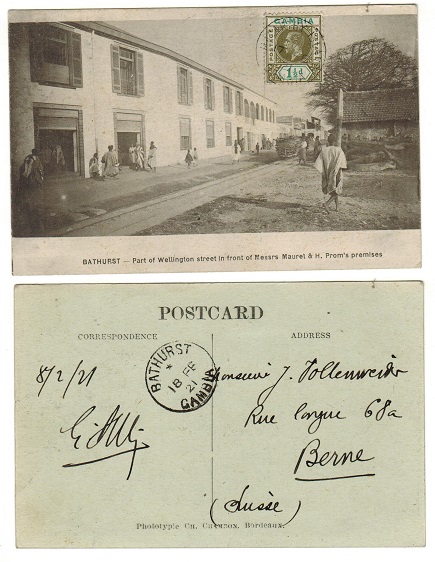 GAMBIA
POSTAGE
1½d
BATHURST — Part of Wellington street in front of Messrs Maurel & H. Prom's premises
POSTCARD
CORRESPONDENCE
ADDRESS
8/2/21
BATHURST
18 FE
21
GAMBIA
Monsieur J. Vollenweider
Rue longue 68a
Berne
(Suisse)
Phototypie Ch. Chambon, Bordeaux.